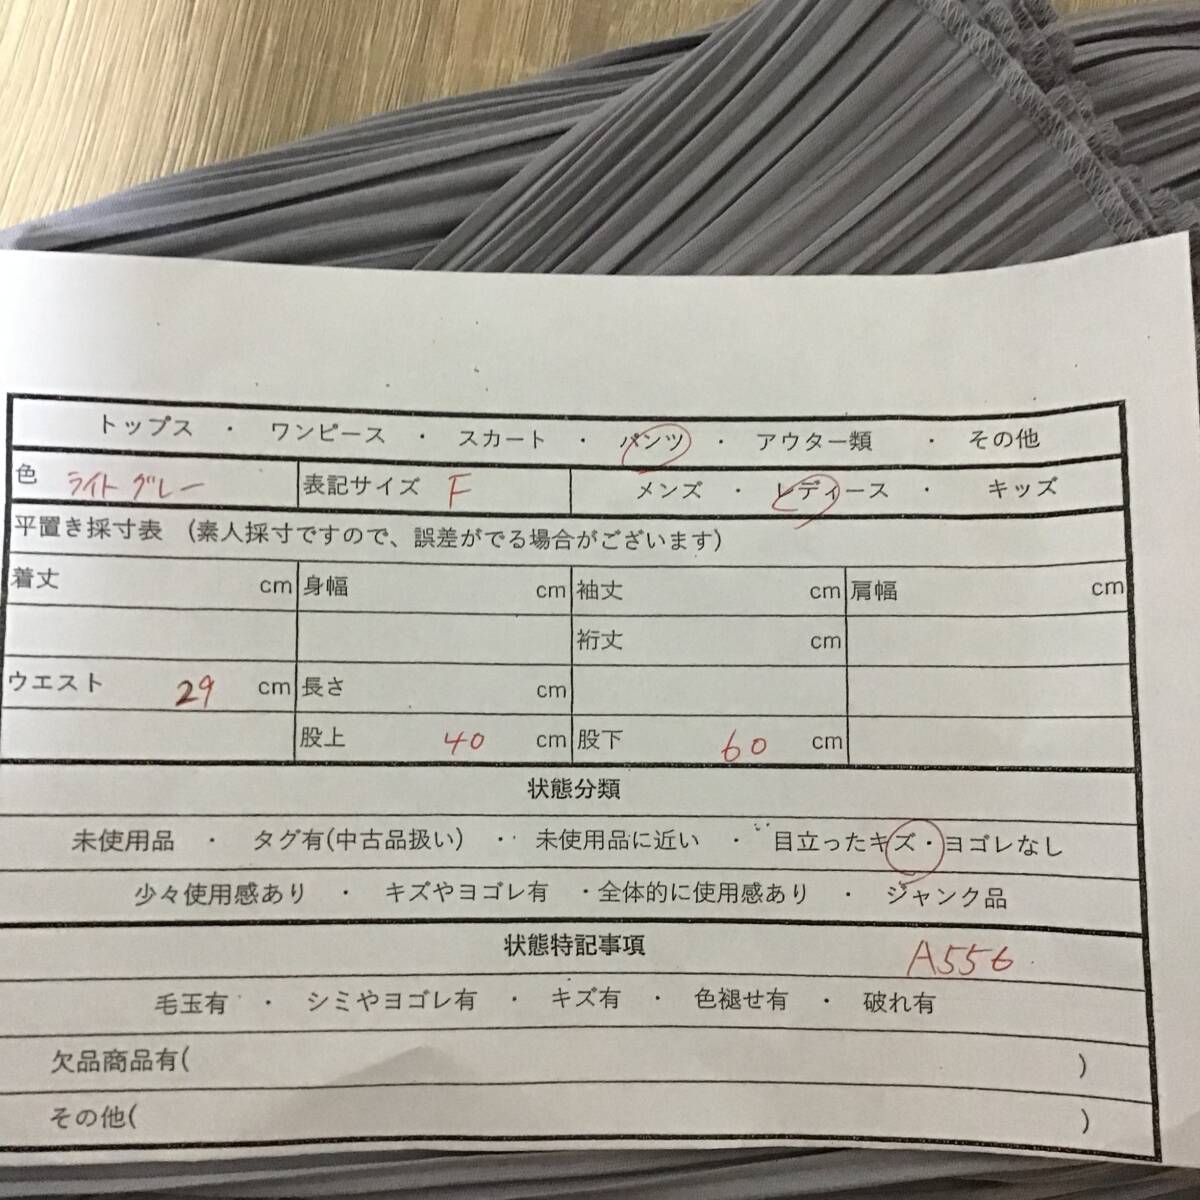 トップス ・ ワンピース ・ スカート ・ パンツ ・ アウター類 ・ その他
色 ライトグレー 表記サイズ F メンズ ・ レディース ・ キッズ
平置き採寸表 (素人採寸ですので、誤差がでる場合がございます)
着丈 cm 身幅 cm 袖丈 cm 肩幅 cm
裄丈 cm
ウエスト 29 cm 長さ cm
股上 40 cm 股下 60 cm
状態分類
未使用品 ・ タグ有(中古品扱い) ・ 未使用品に近い ・ 目立ったキズ・ヨゴレなし
少々使用感あり ・ キズやヨゴレ有 ・全体的に使用感あり ・ ジャンク品
状態特記事項 A556
毛玉有 ・ シミやヨゴレ有 ・ キズ有 ・ 色褪せ有 ・ 破れ有
欠品商品有( )
その他( )